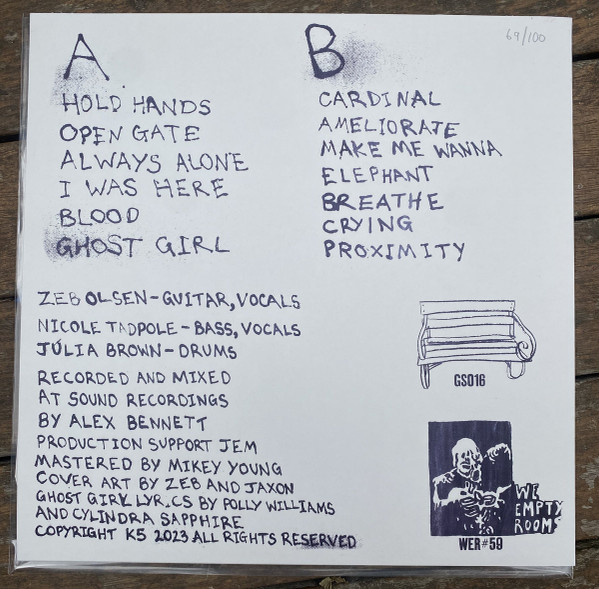 69/100
A
HOLD HANDS
OPEN GATE
ALWAYS ALONE
I WAS HERE
BLOOD
GHOST GIRL
B
CARDINAL
AMELIORATE
MAKE ME WANNA
ELEPHANT
BREATHE
CRYING
PROXIMITY
ZEB OLSEN - GUITAR, VOCALS
NICOLE TADPOLE - BASS, VOCALS
JÚLIA BROWN - DRUMS
RECORDED AND MIXED
AT SOUND RECORDINGS
BY ALEX BENNETT
PRODUCTION SUPPORT JEM
MASTERED BY MIKEY YOUNG
COVER ART BY ZEB AND JAXON
GHOST GIRL LYR.CS BY POLLY WILLIAMS
AND CYLINDRA SAPPHIRE
COPYRIGHT K5 2023 ALL RIGHTS RESERVED
GS016
WE
EMPTY
ROOMS
WER#59